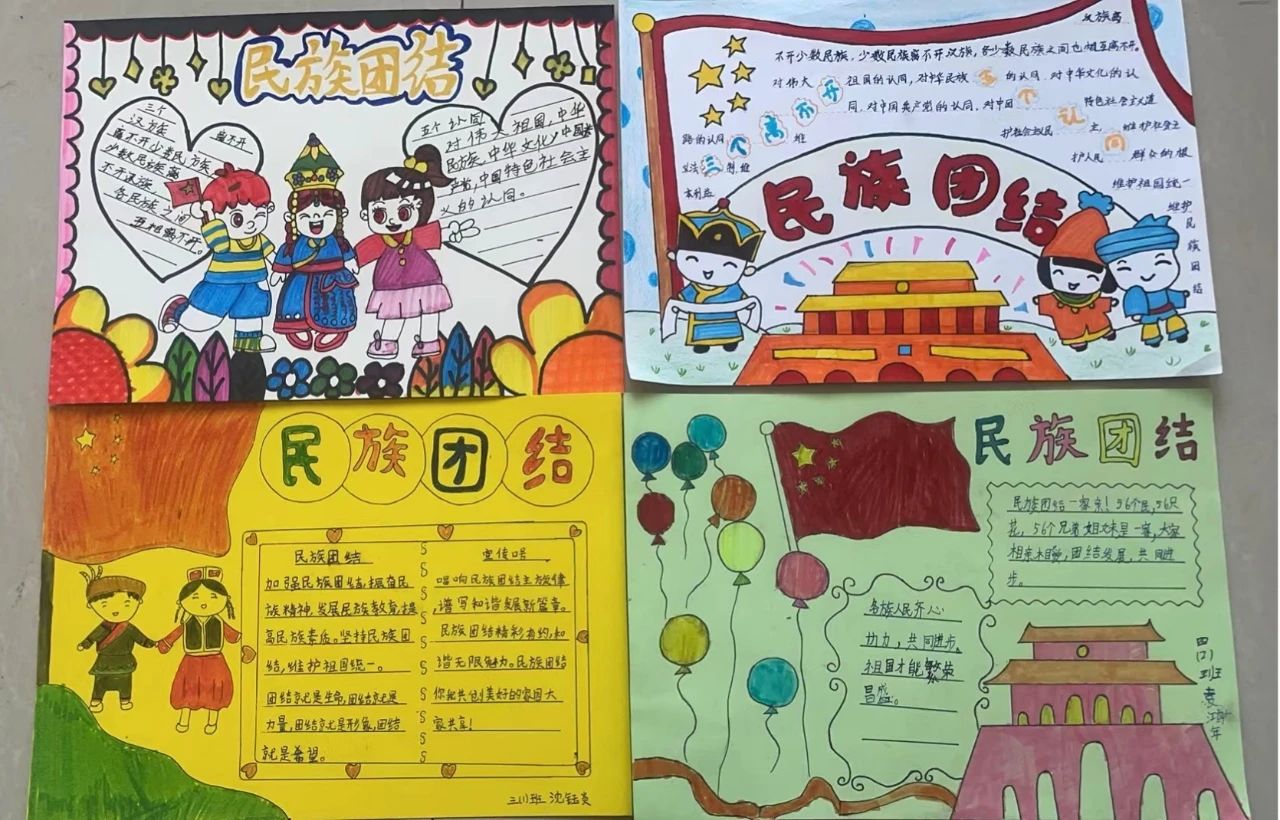 民族团结
三个
汉族
离不开
离不开少数民族
少数民族离
不开汉族
各民族之间
互相离不开。
五个认同
对伟大祖国,中华
民族,中华文化,中国共
产党,中国特色社会主
义的认同。
汉族离
不开少数民族,少数民族离不开汉族,各少数民族之间也相互离不开。
对伟大
祖国的认同,对中华民族
五
的认同.对中华文化的认
同.对中国共产党的认同.对中国
个
特色社会主义道
路的认同
三个离不开
维
护社会权民
认
主,
维护社会主
义法
制,维
护人民
同
群众的根
本利益
维护祖国统一
维护
民族团结
民族团结
民族团结
民族团结
加强民族团结,振奋民
族精神,发展民族教育,提
高民族素质。坚持民族团
结,维护祖国统一。
团结就是生命,团结就是
力量,团结就是形象,团结
就是希望。
宣传唔
唱响民族团结主旋律
,谱写和谐发展新篇章。
民族团结精彩有约,和
谐无限魅力。民族团结
你我共创美好的家园大
家共享!
三(1)班
民族团结
民族团结一家亲!56个民,56只
花,56个兄弟姐妹是一家,大家
相亲相爱,团结发展,共同进
步。
各族人民齐心
协力,共同进步,
祖国才能繁荣
昌盛。
四(2)班